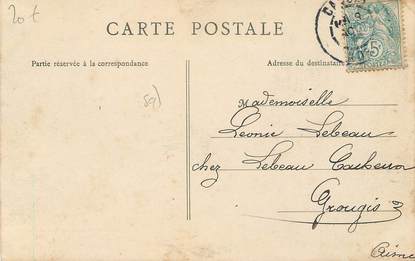 20 t
CARTE POSTALE
Partie réservée à la correspondance
Adresse du destinataire
Mademoiselle
Léonie Lebeau
chez Lebeau
Grougis
Aisne
5